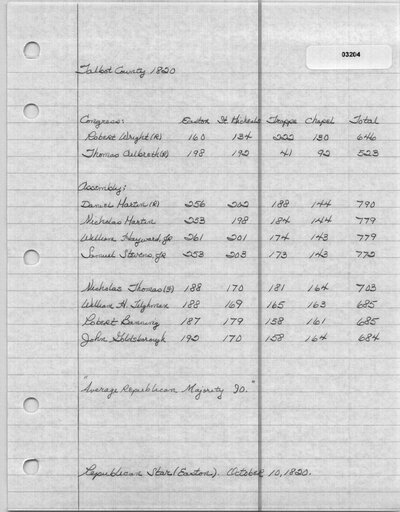 03204
Talbot County 1820
Congress: Easton St. Michaels Trappe Chapel Total
Robert Wright (R) 160 134 222 130 646
Thomas Culbreth (R) 198 192 41 92 523
Assembly:
Daniel Martin (R) 256 202 188 144 790
Nicholas Martin 253 198 184 144 779
William Hayward, Jr 261 201 174 143 779
Samuel Stevens, Jr 253 203 173 143 772
Nicholas Thomas (F) 188 170 181 164 703
William H. Tilghman 188 169 165 163 685
Robert Banning 187 179 158 161 685
John Goldsborough 192 170 158 164 684
"Average Republican Majority 90."
Republican Star (Easton). October 10, 1820.